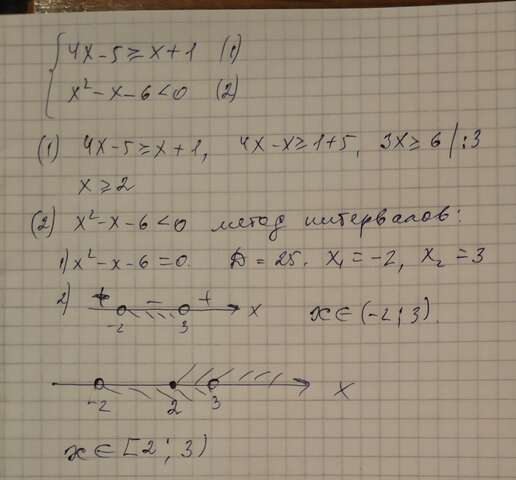 4x-5≥x+1 (1)
x²-x-6<0 (2)
(1) 4x-5≥x+1, 4x-x≥1+5, 3x≥6 |:3
x≥2
(2) x²-x-6<0 метод интервалов:
1) x²-x-6=0. D=25. x₁=-2, x₂=3
2) + - + x
-2 3
x∈(-2;3).
-2 2 3 x
x∈[2;3)